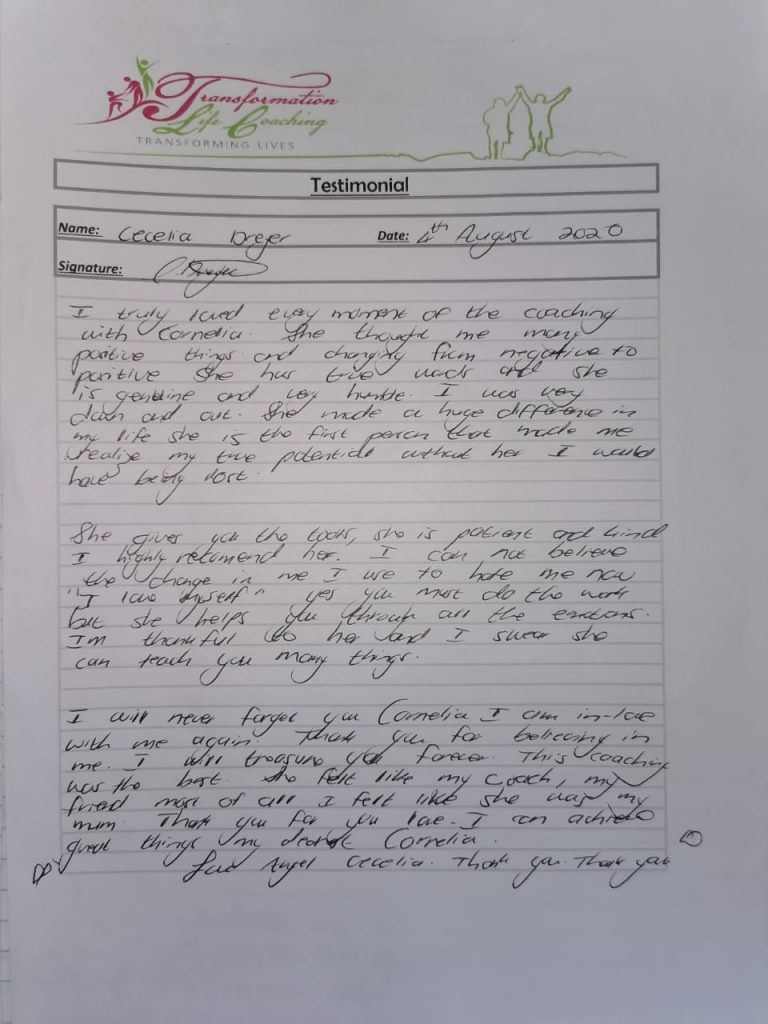 Transformation
Life Coaching
TRANSFORMING LIVES
Testimonial
Name: Cecelia Dreyer Date: 4th August 2020
Signature: C. Dreyer
I truly loved every moment of the coaching
with Cornelia. She thought me many
positive things and changing from negative to
positive She has true words and she
is genuine and very humble. I was very
down and out. She made a huge difference in
my life she is the first person that made me
realize my true potential without her I would
have being lost.
She gives you the tools, she is patient and kind
I highly recomend her. I can not believe
the change in me I use to hate me now
"I love myself" yes you must do the work
but she helps you through all the emotions.
Im thankful to her and I swear she
can teach you many things.
I will never forget you Cornelia I am in-love
with me again. Thank you for believing in
me. I will treasure you forever. This coaching
was the best. She felt like my coach, my
friend most of all I felt like she was my
mum. Thank you for you love. I can achieve
great things my dearest Cornelia.
Love Angel Cecelia. Thank you. Thank you